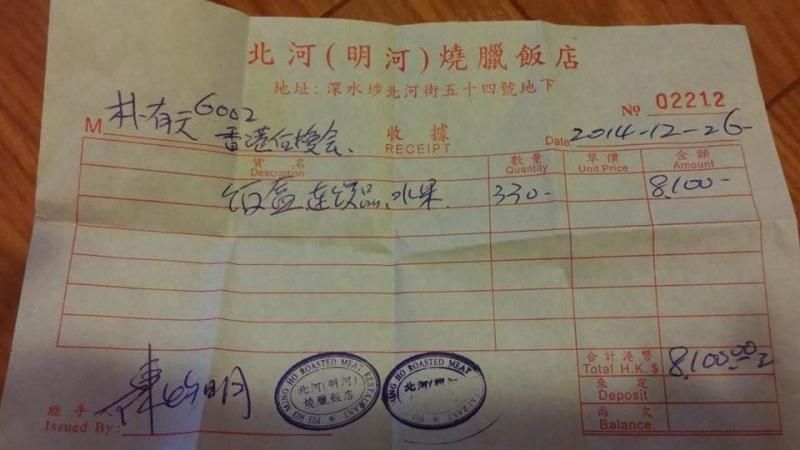 北河(明河)燒臘飯店
地址:深水埗北河街五十四號地下
No 02212
M 林有天 6002
香港
收據
RECEIPT
Date 2014-12-26
貨名 數量 單價 金額
Description Quantity Unit Price Amount
飯盒連飲品、水果 330- 8,100-
合計港幣
Total H.K. $ 8,100.00
來定
Deposit
尚欠
Balance
經手人
Issued By: 陳灼明
PEI HO MING HO ROASTED MEAT RESTAURANT
北河(明河)
燒臘飯店
PEI HO MING HO ROASTED MEAT RESTAURANT
北河(明河)